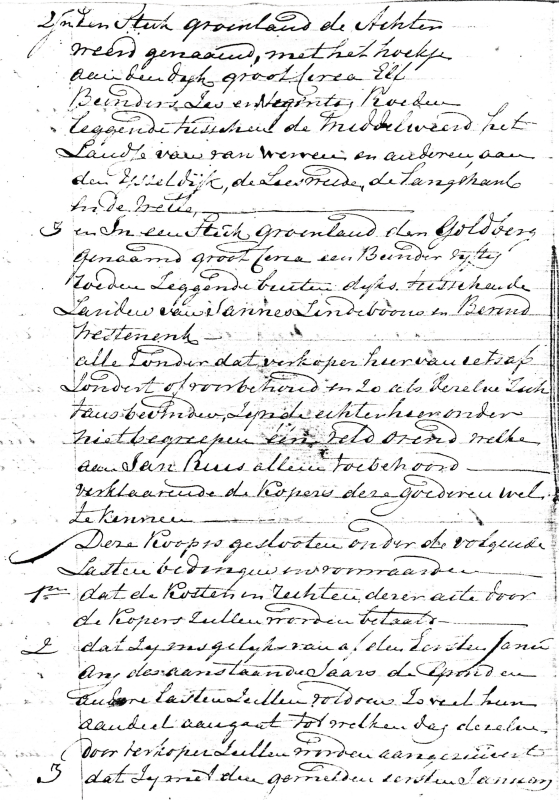 2 In den Stuk groenland de Achter
weerd genaamd, met het hoekje
aan den dyk groot Circa Elf
Bunders Zes en Negentig Roeden
leggende tusschen de Middelweerd het
Landje van van Werven en anderen, aan
den Ysseldyk, de Leeweide, de Langekant
en de Wetle
3 en In een Stuk groenland den Goldberg
genaamd groot Circa een Bunder vyftig
roeden Leggende buiten dyks tusschen de
Landen van Hannes Lindeboom en Berend
Westenenk
alle Zonder dat verkoper hier van iets af
Zondert of voorbehoud en Zo als dezelve Zich
thans bevinden, Zynde echter hier onder
niet begreepen één veld orend welke
aan Jan Buus alleen toebehoord
verklaarende de Kopers deze goederen wel
te kennen
Deze Koop is geslooten onder de volgende
Lasten bedingen en voorwaarden
1mo dat de Kosten en rechten dezer acte door
de Kopers Zullen worden betaald
2 dat Zy insgelyks van af den Eersten Janu
ary des aanstaande Jaars de Grond en
andere lasten Zullen voldoen Zo veel hun
aandeel aangaat tot welken dag dezelve
door verkoper Zullen worden aangezuivert
3 dat Zy met den gemelden eersten January